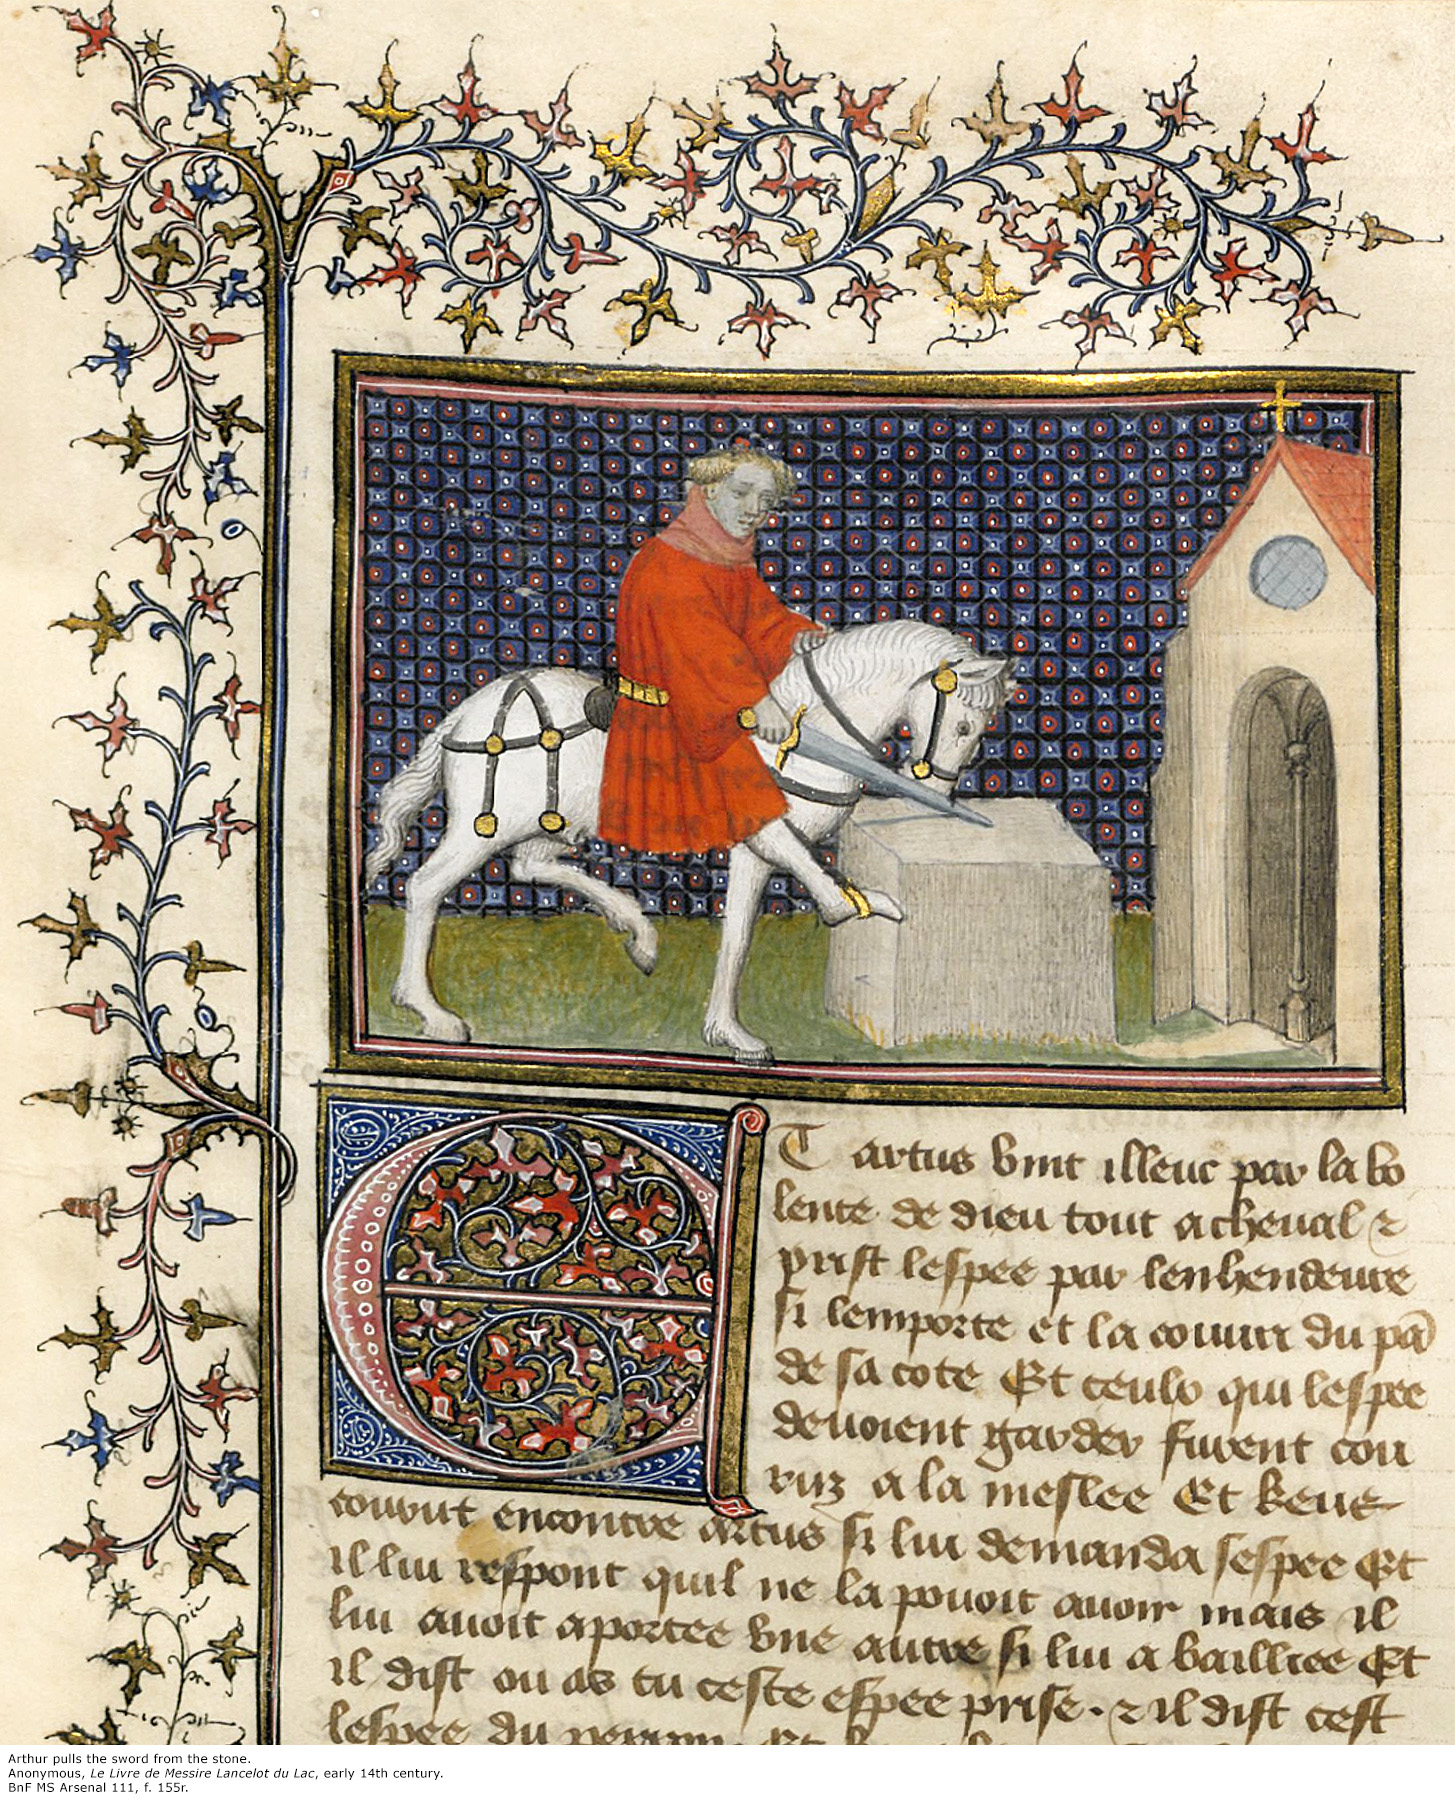 Et artus vint illeuc par la vo
lente de dieu tout a cheual ⁊
prist lespee par lenhendeure
si lemporte et la couuri du pā
de sa cote Et ceulx qui lespee
deuoient garder furent cou
ruz a la meslee Et keue
courut encontre artus si lui demanda sespee Et
il lui respont quil ne la pouoit auoir mais il
lui auoit aportee vne autre si lui a bailliee Et
il dist ou as tu ceste espee prise. ⁊ il dist cest
lespee du perron
Arthur pulls the sword from the stone.
Anonymous, Le Livre de Messire Lancelot du Lac, early 14th century.
BnF MS Arsenal 111, f. 155r.